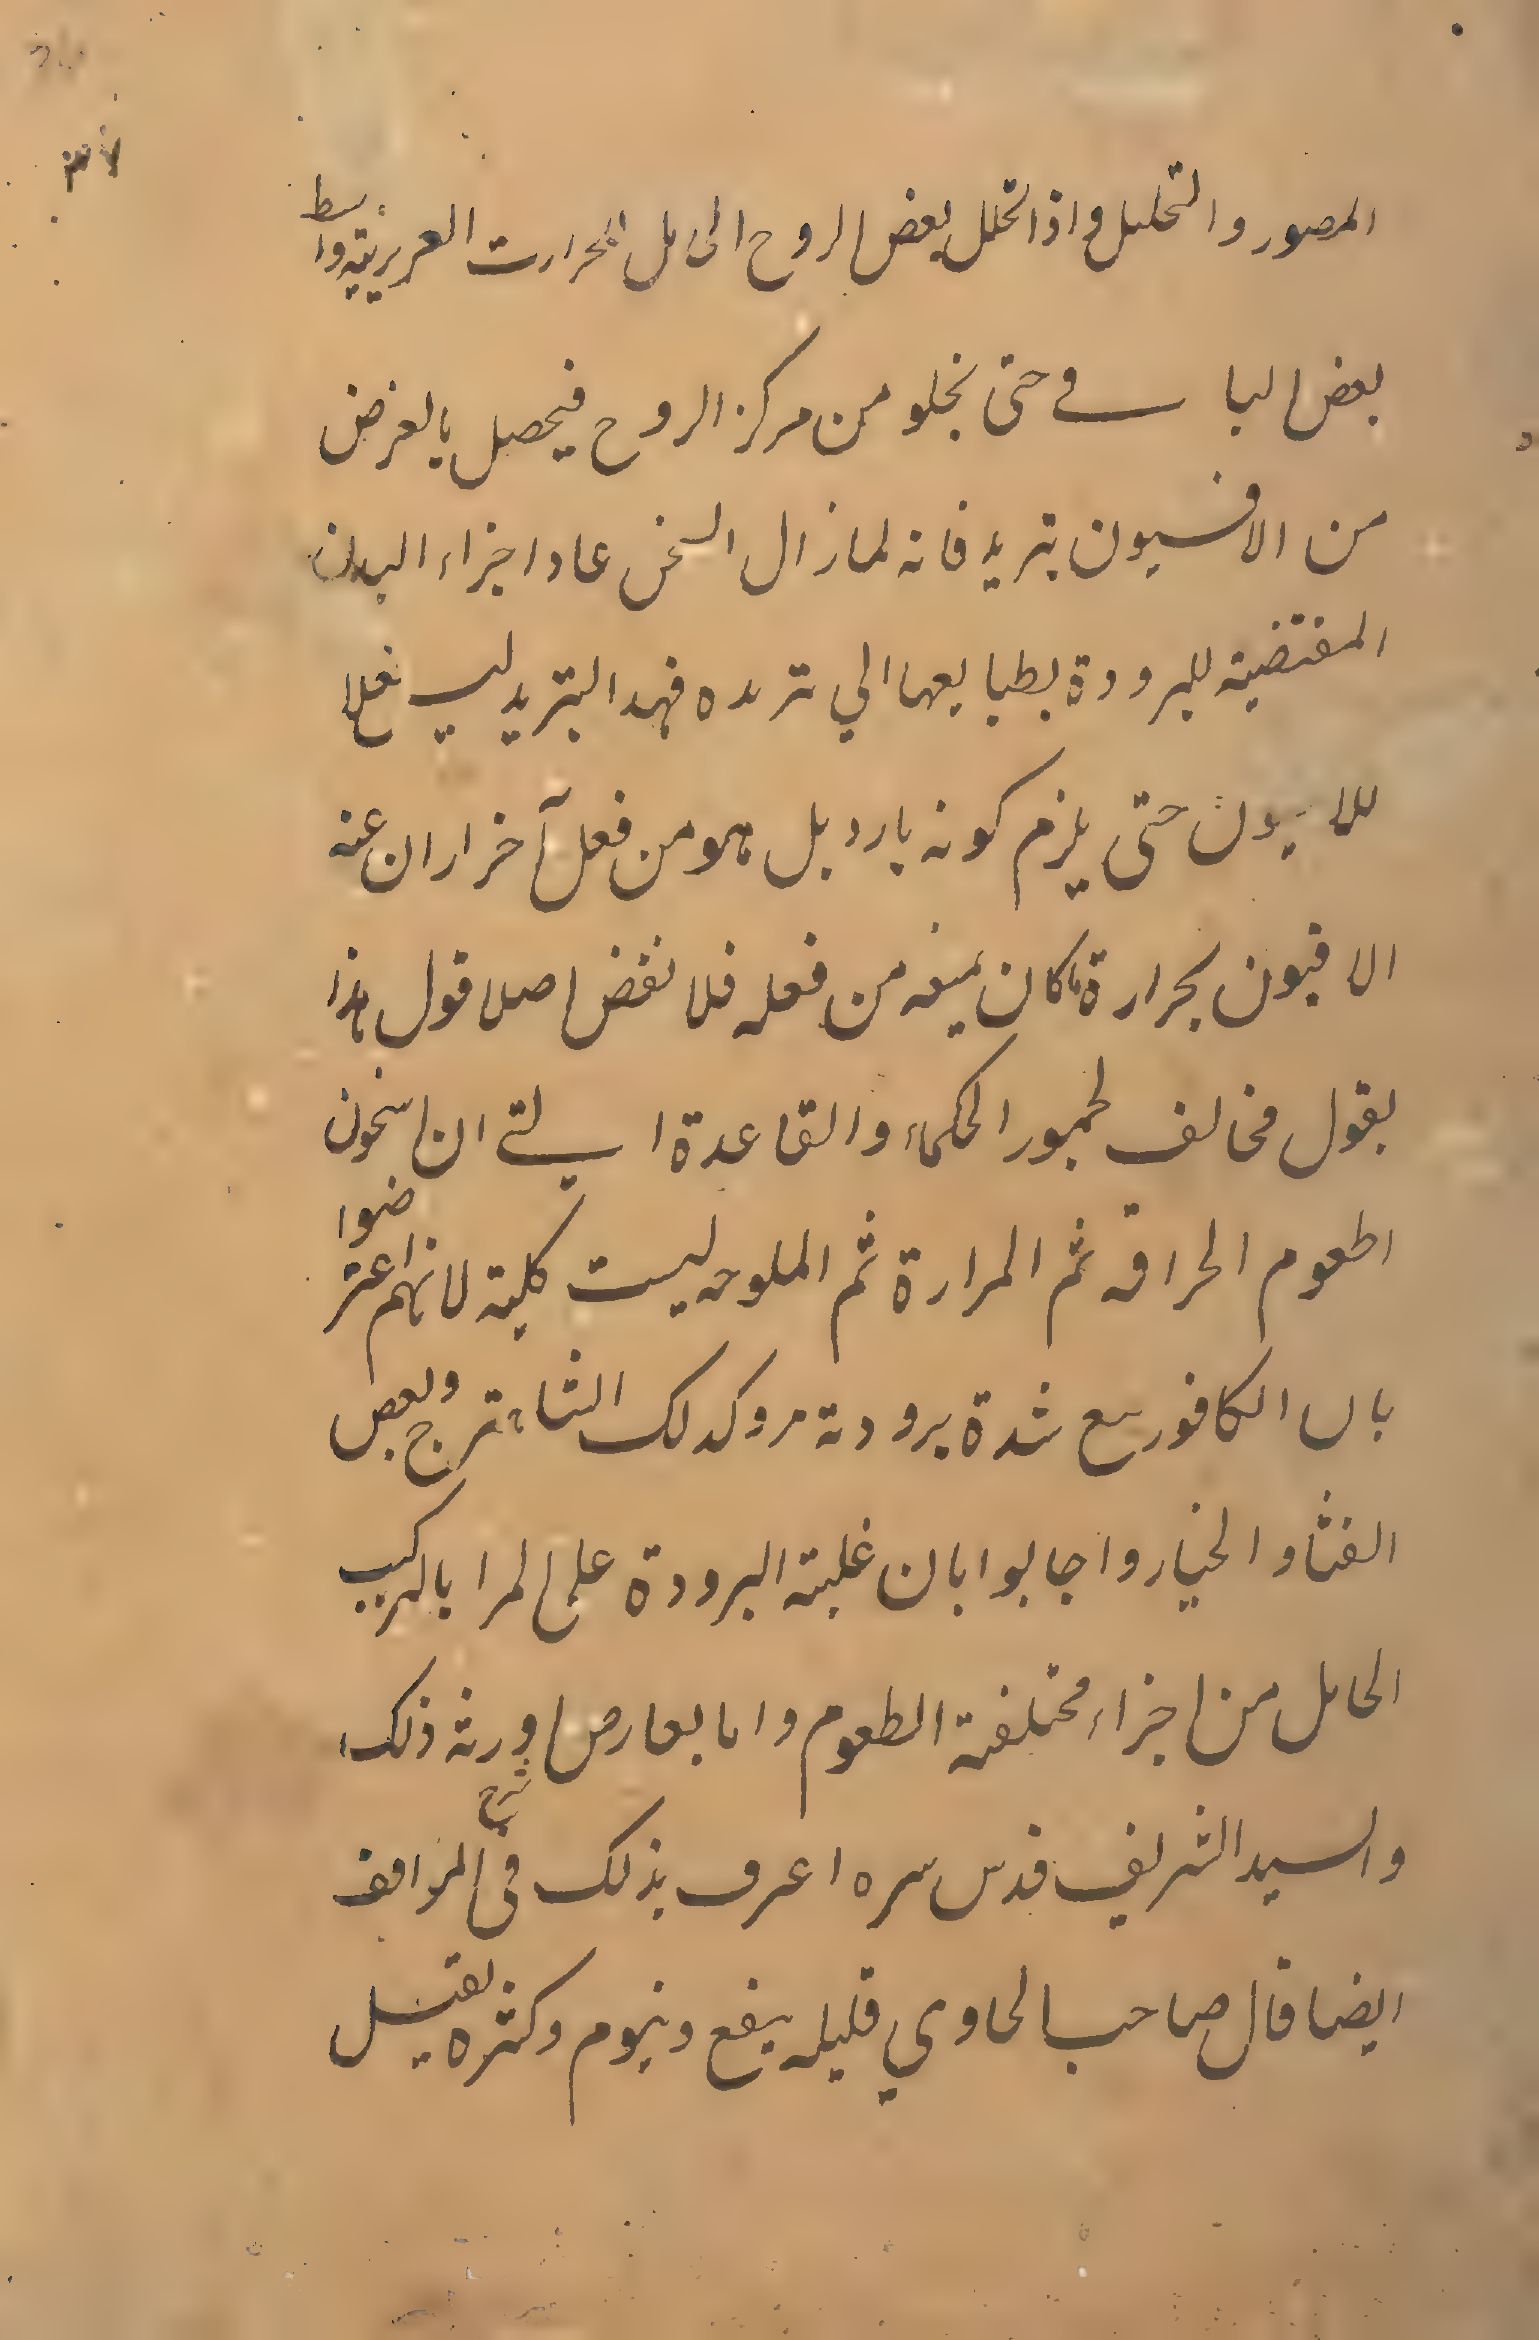 ٣٧
المصور والتحليل واذا تحلل بعض الروح الحامل للحرارت الغريزيته وانبسط
بعض الباقے حتى تخلو من مركز الروح فيحصل بالعرض
من الافسيون تبريد فانه لما زال المسخن عاد اجزاء البدن
المقتضية للبرودة بطبايعها الي تبرده فهدا التبريد ليس فعلا
للافيون حتى يلزم كونه بارد بل هو من فعل آخر ازان عنه
الافيون بحرارة ما كان يمنعه من فعله فلا نقض اصلا قول هذا
بقول مخالف لجمهور الحكماء والقاعدة التے ان اسخن
اطعوم الحرافه ثم المرارة ثم الملوحه ليست كلية لانهم اعترضوا
بان الكافور مع شدة برودته مر وكدلك الشاهترج وبعض
القثا و الخيار واجابوا بان غلبته البرودة على المرا بالتركيب
الحامل من اجزاء مختلفته الطعوم واما بعارض اورثه ذلك
والسيد الشريف قدس سره اعرف بذلك في شرح المواقف
ايضا قال صاحب الحاوي قليله ينفع وينوم وكثره يقتل